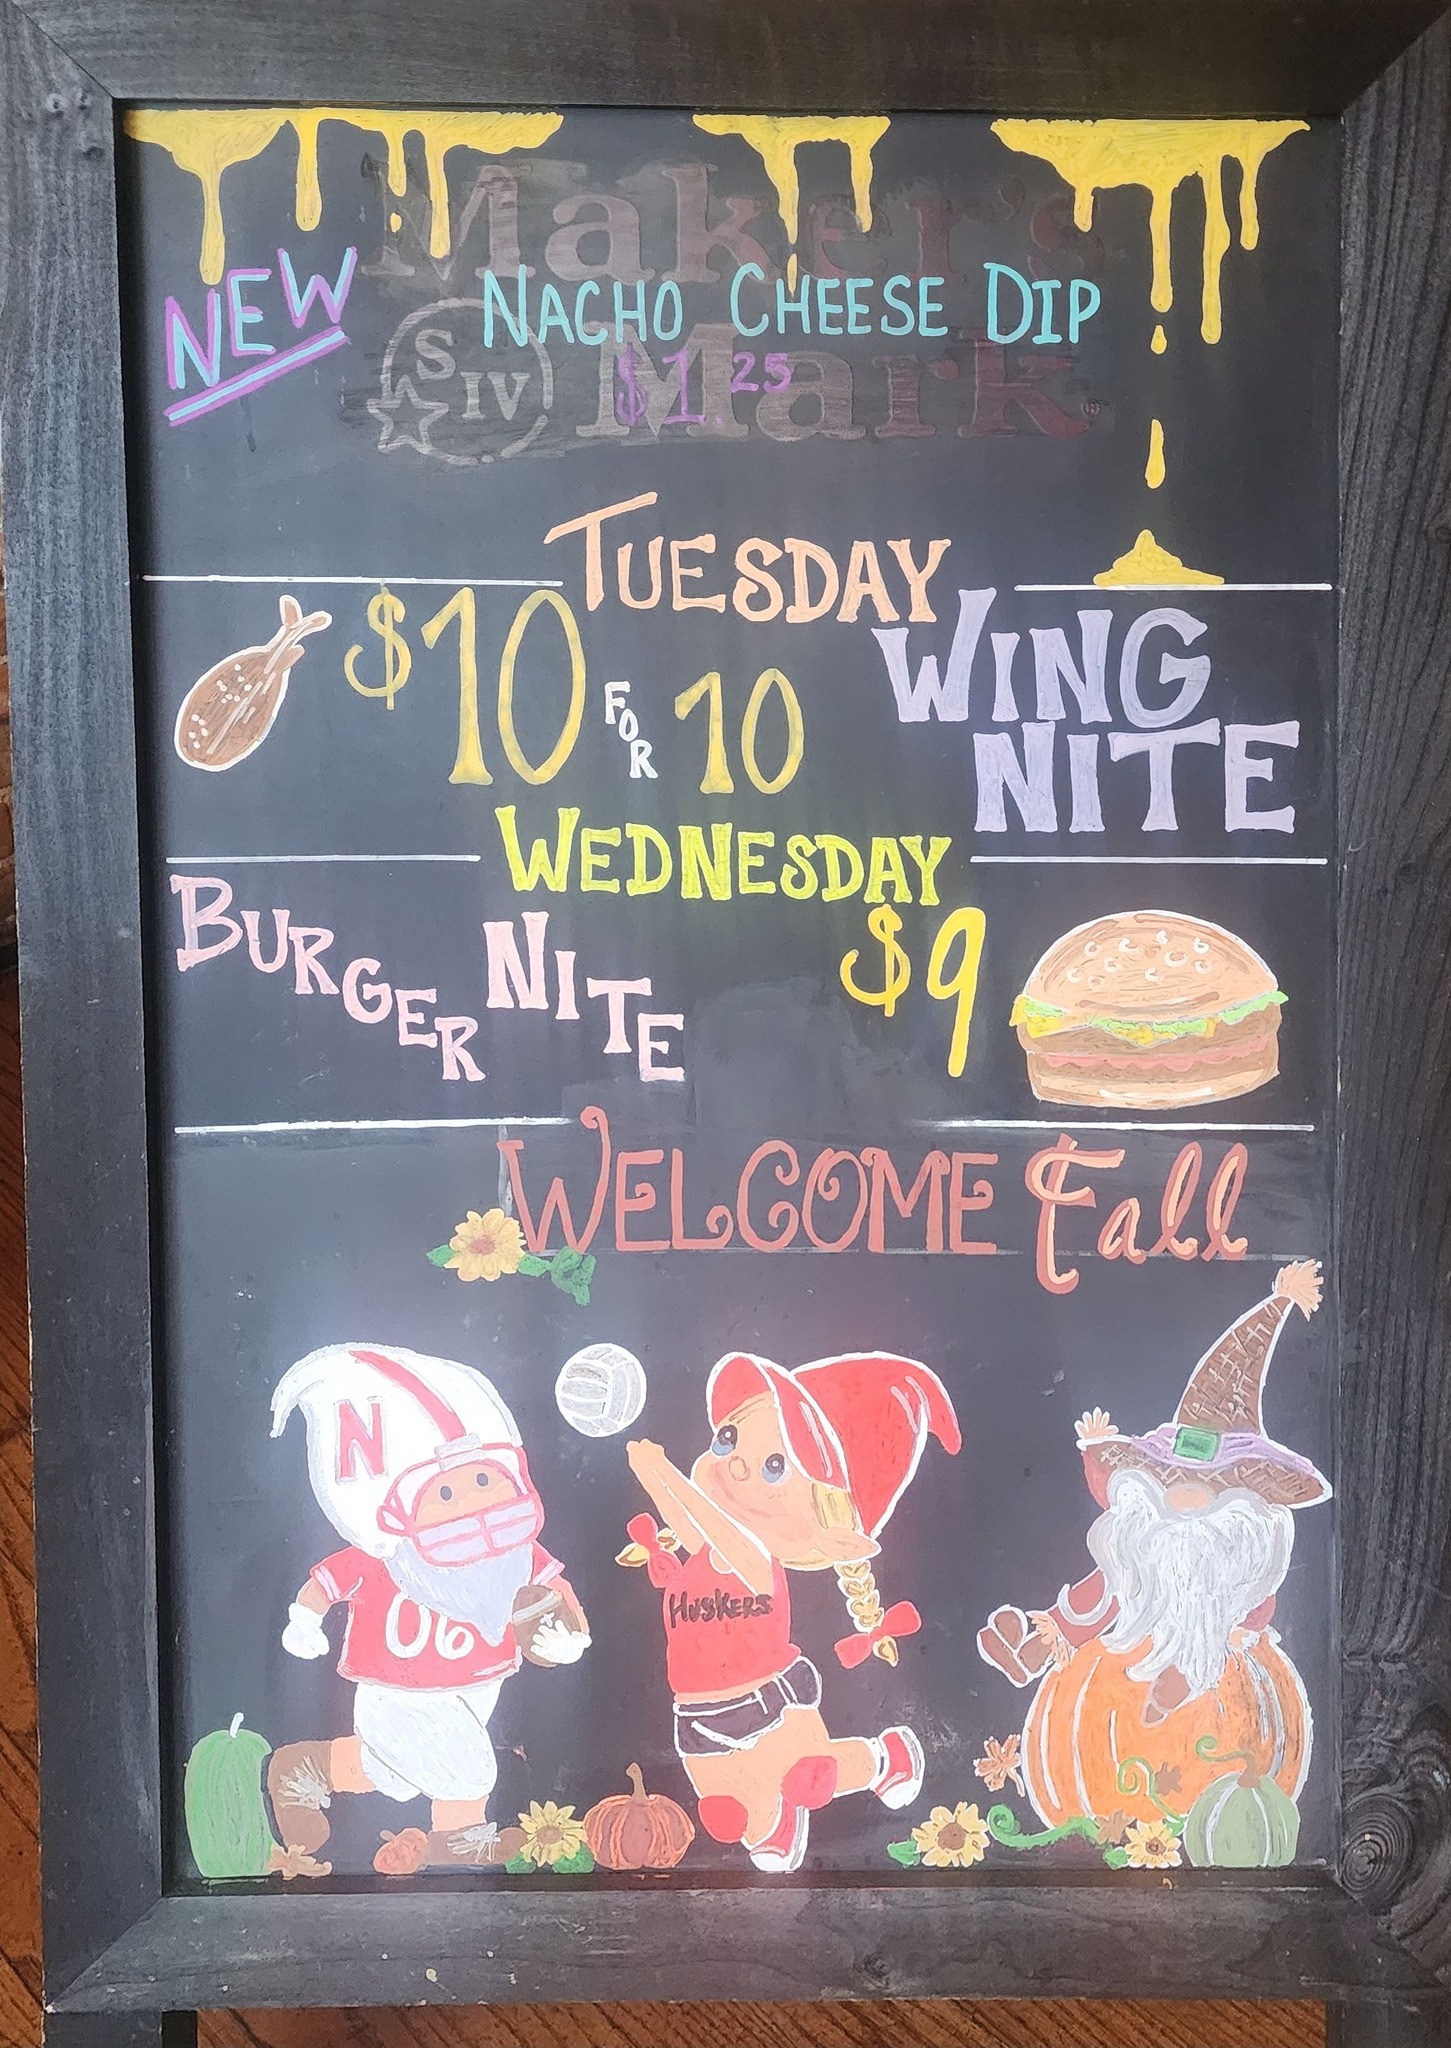 Maker's
NEW
NACHO CHEESE DIP
S IV
Mark
$1.25
TUESDAY
$10 FOR 10
WING
NITE
WEDNESDAY
BURGER NITE
$9
WELCOME Fall
N
HUSKERS
06